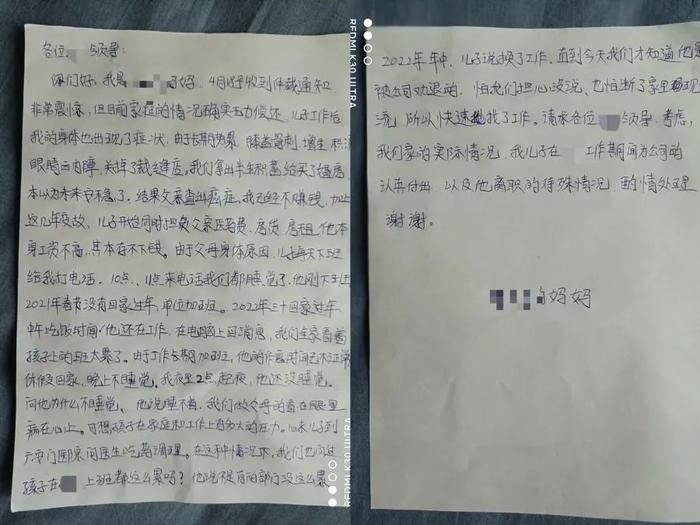 各位 领导:
你们好,我是 妈妈,4月18号收到仲裁通知
非常震惊,但目前家庭的情况确实无力偿还。儿子工作后
我的身体也出现了症状,由于长期劳累 膝盖骨刺 增生 积
眼睛白内障,
我们拿出半生积蓄给买了
本以为未来安稳了。结果父亲查出癌症,我已经不赚钱,加上
这几年变故、儿子开始同时担负父亲医药费、房贷、房租,他本
身工资不高,基本存不下钱。由于父母身体原因,儿子每天下班
给我打电话。10点、11点来电话我们都睡觉了,他刚下班
2021年春节没有回家过年,单位加班。2022年三十回家过年
中午吃饭时间他还在工作,在电脑上回消息,我们全家看着
孩子上的班太累了。由于工作长期加班,他的作息时间已不正常
休假回家,晚上不睡觉。我夜里2点起夜,他还没睡觉。
问他为什么不睡觉,他说睡不着,我们做父母的看在眼里
疼在心上。可想孩子在家庭和工作上有多大的压力。 儿子到
医院问医生吃药调理。在这种情况下,我们也问过
孩子在 上班都这么累吗?他说不是有的部门没这么累
2022年年中,儿子说换了工作,直到今天我们才知道他是
被公司劝退的,怕我们担心没说,也怕断了家里现
流,所以快速找了工作。请求各位 领导,考虑,
我们家的实际情况,我儿子在 工作期间为公司的
认真付出,以及他离职的特殊情况,酌情处理
谢谢。
妈妈
REDMI K30 ULTRA
REDMI K30 ULTRA